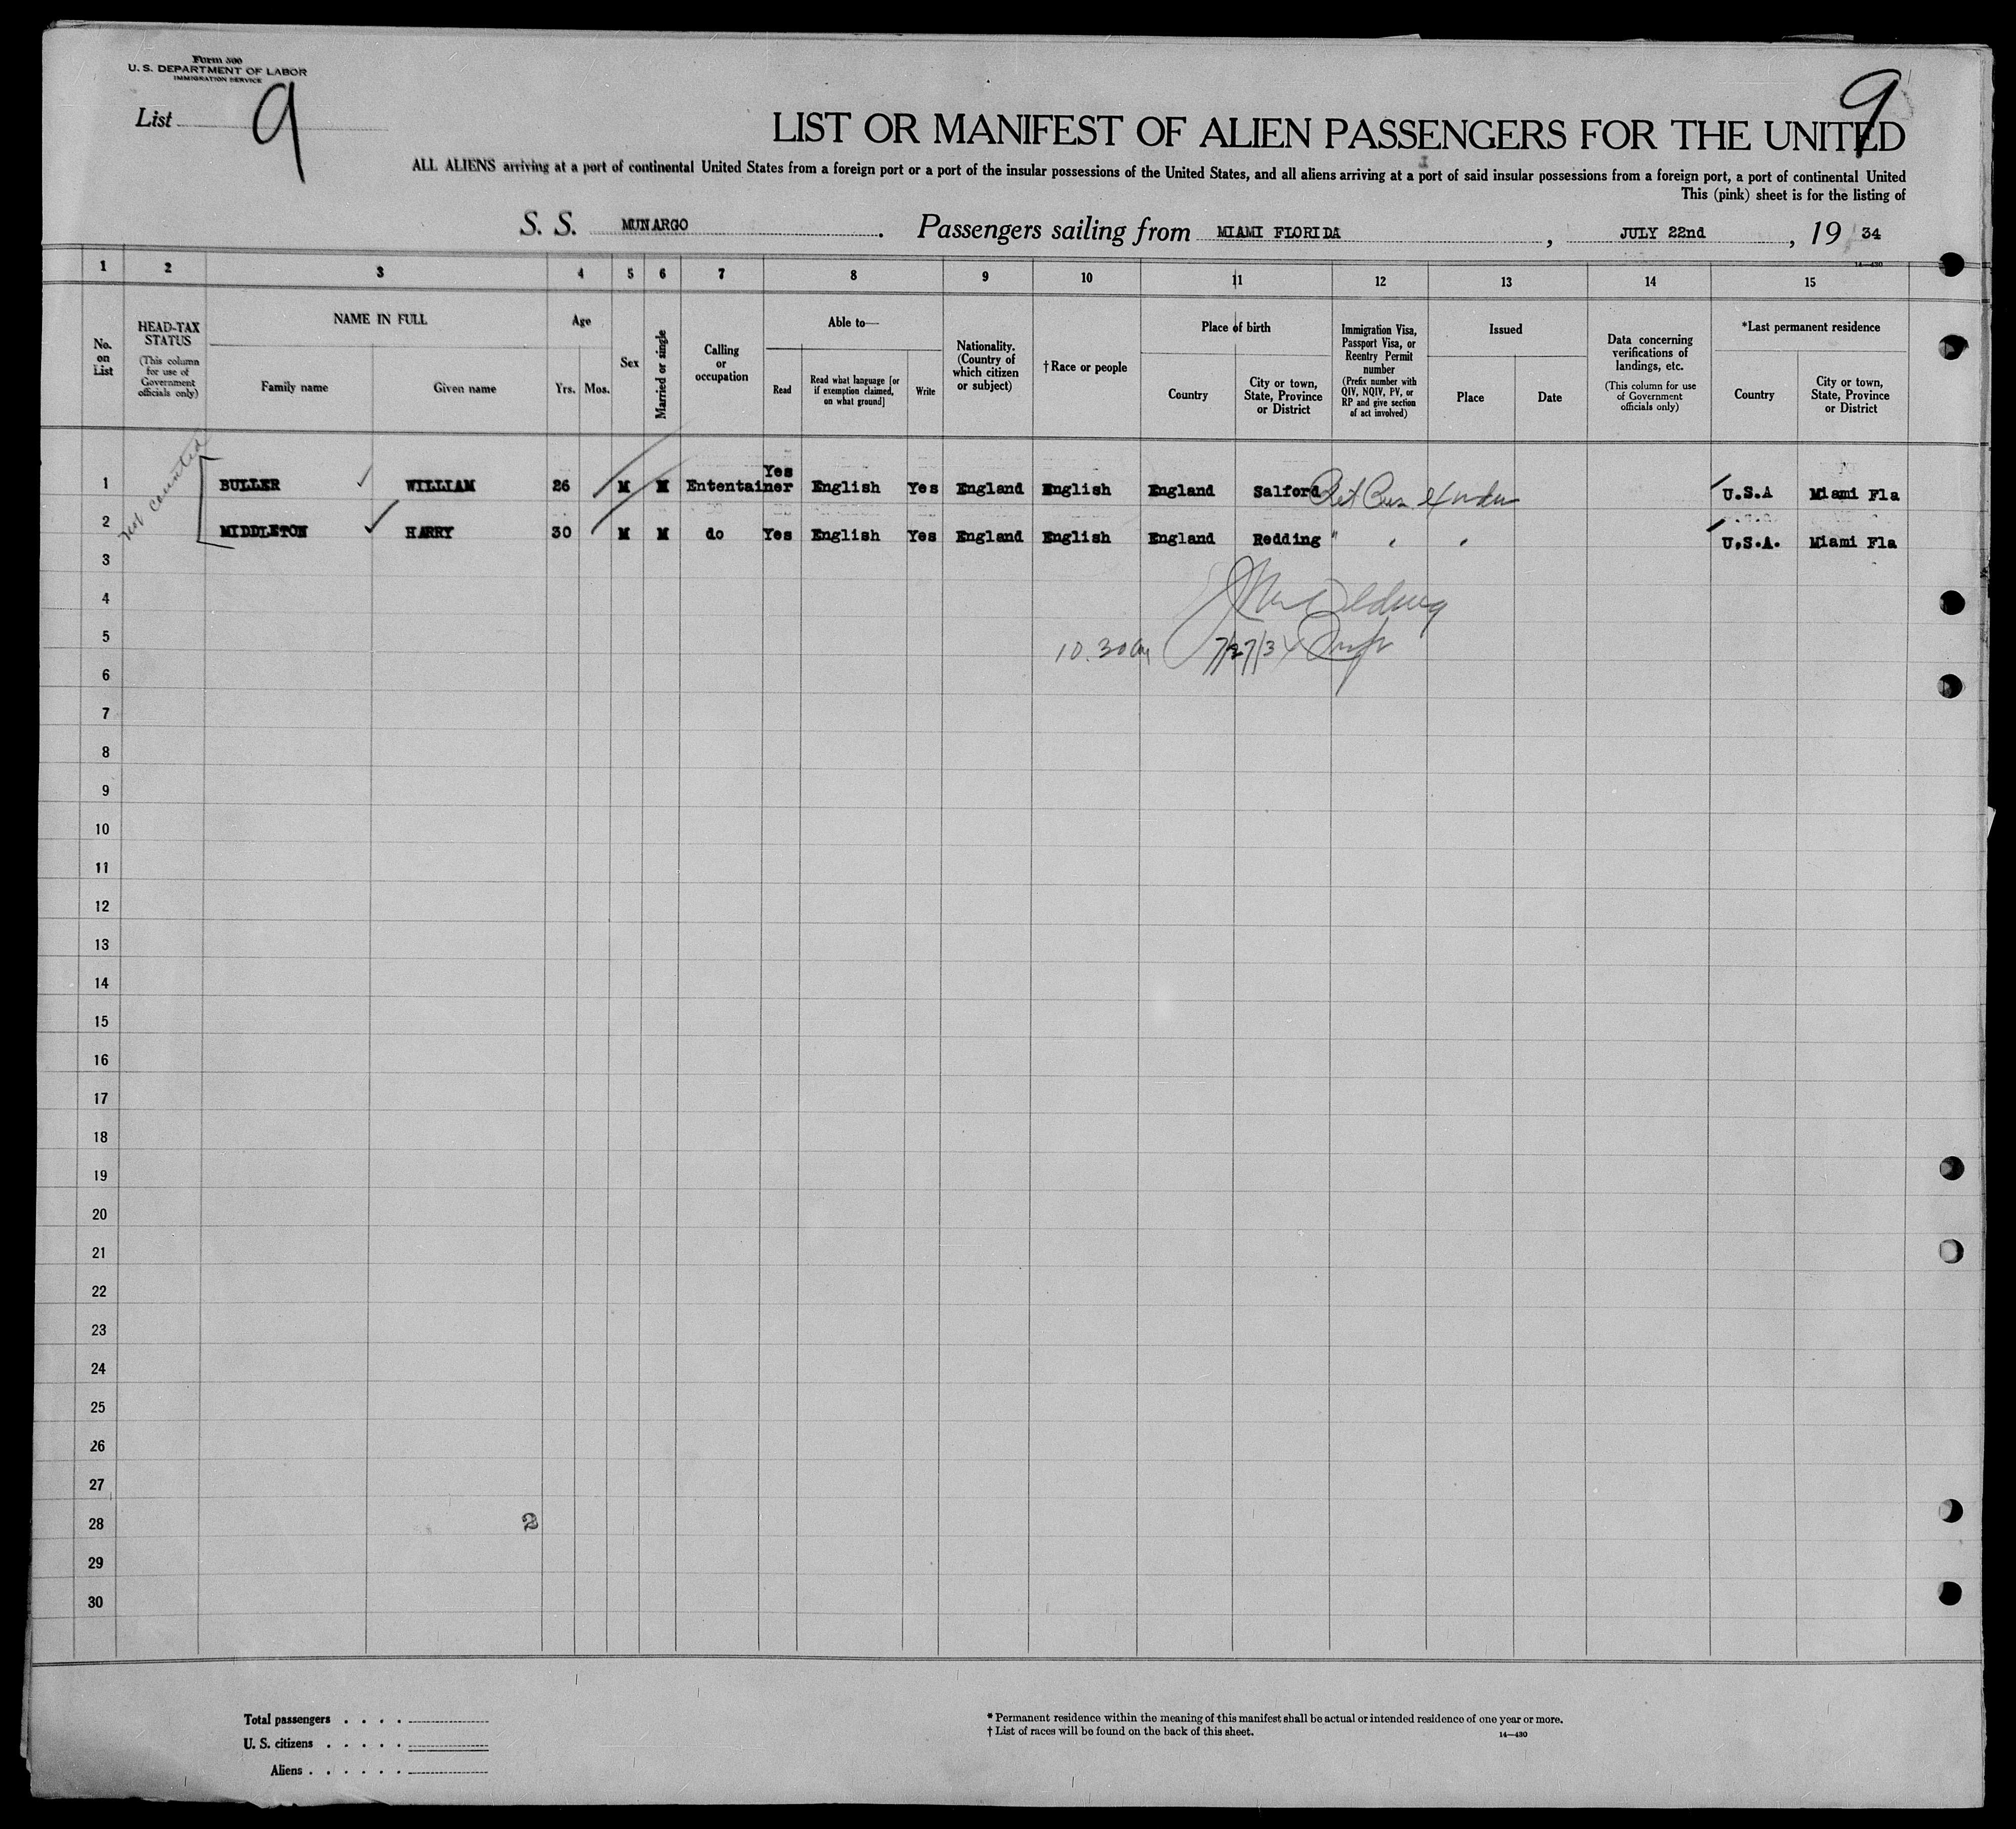 Form 500
U. S. DEPARTMENT OF LABOR
IMMIGRATION SERVICE
List 9
9
LIST OR MANIFEST OF ALIEN PASSENGERS FOR THE UNITED
ALL ALIENS arriving at a port of continental United States from a foreign port or a port of the insular possessions of the United States, and all aliens arriving at a port of said insular possessions from a foreign port, a port of continental United
This (pink) sheet is for the listing of
S. S. MUNARGO. Passengers sailing from MIAMI FLORIDA, JULY 22nd, 19 34
14—430
1 2 3 4 5 6 7 8 9 10 11 12 13 14 15
No. on List
HEAD-TAX STATUS
(This column for use of Government officials only)
NAME IN FULL
Family name
Given name
Age
Yrs. Mos.
Sex
Married or single
Calling or occupation
Able to—
Read
Read what language [or if exemption claimed, on what ground]
Write
Nationality. (Country of which citizen or subject)
† Race or people
Place of birth
Country
City or town, State, Province or District
Immigration Visa, Passport Visa, or Reentry Permit number
(Prefix number with QIV, NQIV, PV, or RP and give section of act involved)
Issued
Place
Date
Data concerning verifications of landings, etc.
(This column for use of Government officials only)
*Last permanent residence
Country
City or town, State, Province or District
not counted
1 BULLER WILLIAM 26 M M Ententainer Yes English Yes England English England Salford U.S.A Miami Fla
2 MIDDLETON HARRY 30 M M do Yes English Yes England English England Redding " U.S.A. Miami Fla
3
4
5
10.30am 7/27/34
6
7
8
9
10
11
12
13
14
15
16
17
18
19
20
21
22
23
24
25
26
27
28
2
29
30
Total passengers . . . .
U. S. citizens . . . . .
Aliens . . . . . .
* Permanent residence within the meaning of this manifest shall be actual or intended residence of one year or more.
† List of races will be found on the back of this sheet.
14—430